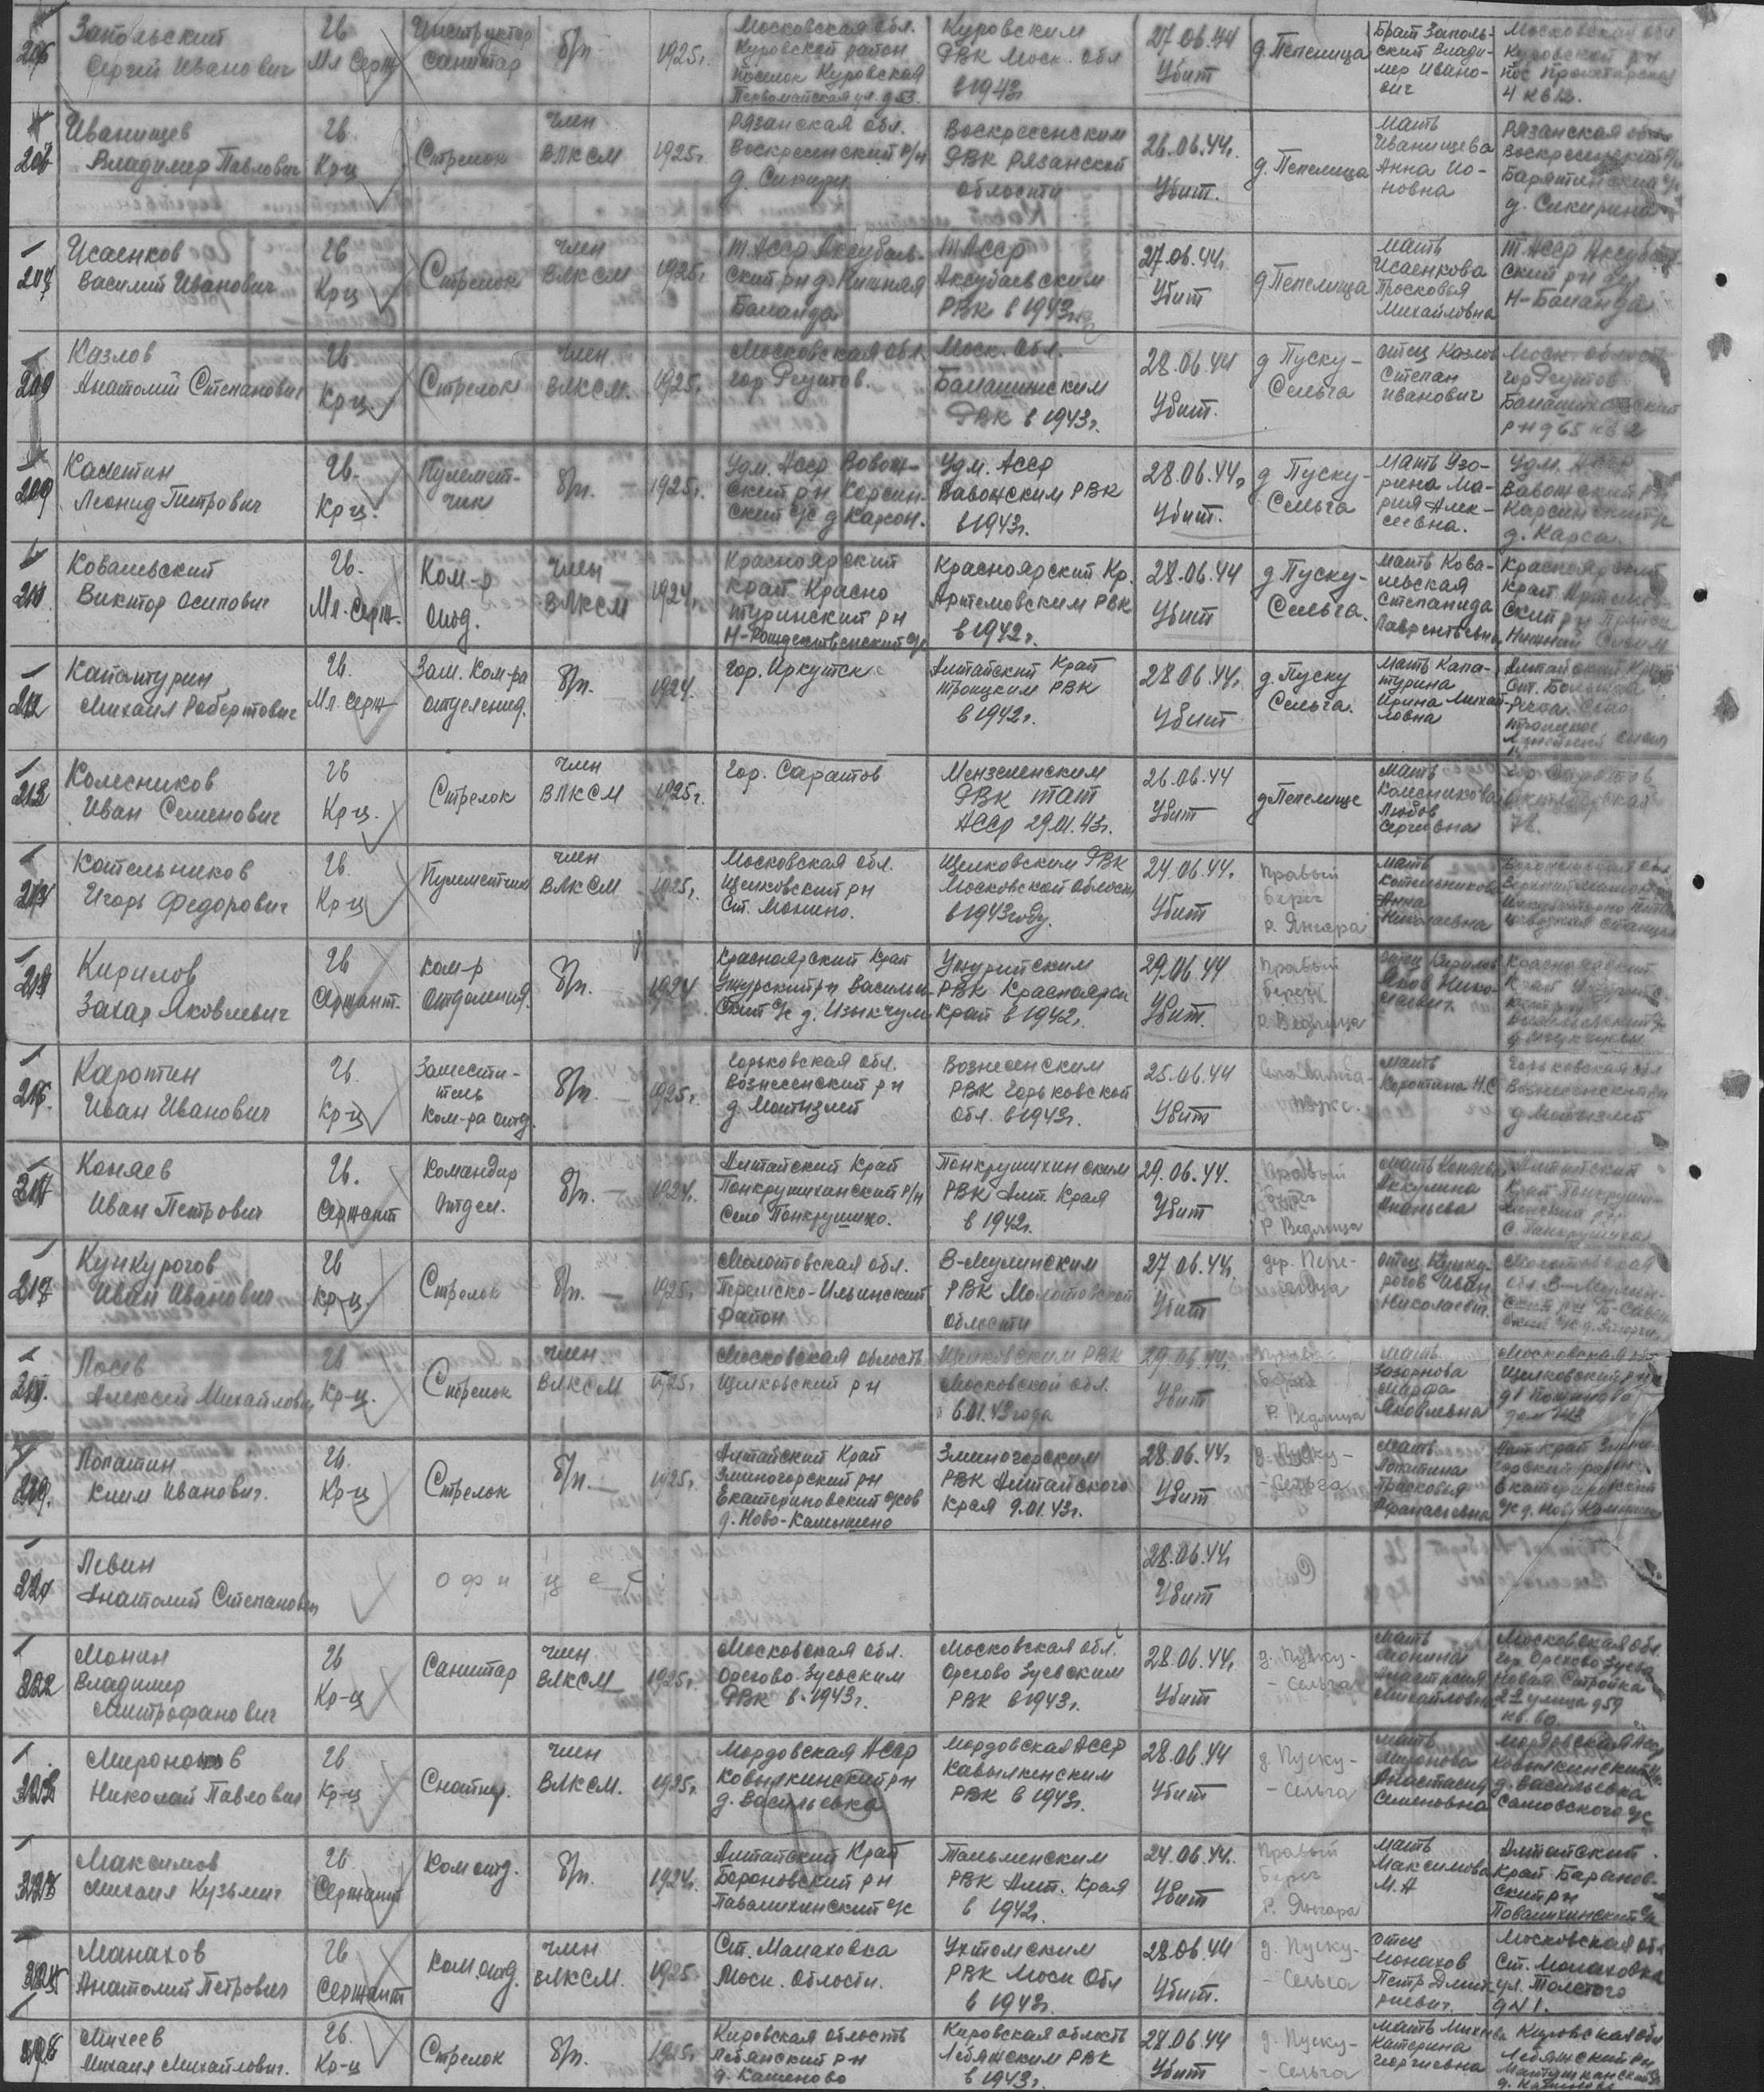 Запольский
Сергей Иванович
Гв
Мл Серж
Инструктор
санитар
б/п.
1925г.
Московская обл.
Куровской район
Поселок Куровская
Первомайская ул. д 53.
Куровским
РВК Моск. обл
в 1943г
27.06.44
Убит
д Пепелица
Брат Заполь-
ский Влади-
мер Ивано-
вич
Московская обл
Куровской р н
4 кв 12.
Иванищев
Владимер Павлович
Гв.
Кр-ц
Стрелок
член
ВЛКСМ
1925г
Рязанская обл.
Воскресенский р/н
Воскресенским
РВК Рязанской
области
26.06.44г.
Убит.
д. Пепелица
Мать
Иванищева
Анна Ио-
новна
Рязанская обл
Воскресенский р/н
Барятинский с/с
д. Сикирино
207
Исаенков
Василий Иванович
Гв
Кр-ц
Стрелок
член
ВЛКСМ
1925г
Т. АССР Аксубаев-
ский рн д. Нижняя
Баланда
Т АССР
Аксубаевским
РВК в 1943г
27.06.44г
Убит
д Пепелица
Мать
Исаенкова
Просковья
Михайловна
Т. АССР Аксубаев
ский рн
Н-Баланда
209
Казлов
Анатолий Степанович
Гв
Кр-ц
Стрелок
член
ВЛКСМ.
1925г.
Московская обл.
гор Реутов.
Моск. обл.
Балашихским
РВК в 1943г.
28.06.44
Убит.
д Пуску-
Сельга
отец Казлов
Степан
Иванович
Моск. область
гор Реутов
Балашиховский
рн д 65 кв 2
209
Калетин
Леонид Петрович
Гв.
Кр-ц.
Пулемет-
чик
б/п.
1925г.
Удм. АССР Вовож-
ский рн Карсин-
ский с/с д Карсон.
Удм. АССР
Вавожским РВК
в 1943г.
28.06.44г
Убит.
д Пуску-
Сельга
Мать Узо-
рина Ма-
рия Алек-
сеевна.
Удм. АССР
Вавожский рн
Карсинский с/с
д. Карса.
Ковальский
Виктор Осипович
Гв.
Мл. Серж.
Ком-р
отд.
член
ВЛКСМ
1924г.
Красноярский
край Красно
туринский рн
Н-Рождественский с/с
Красноярский Кр.
Артемовским РВК
в 1942г.
28.06.44
Убит
д Пуску-
Сельга.
Мать Кова-
льская
Степанида
Лаврентьевна
Красноярский
край Артемов
ский рн
Капантурин
Михаил Робертович
Гв.
Мл. Серж
Зам. Ком-ра
отделения.
б/п.
1924.
гор. Иркутск
Алтайский Край
Троицким РВК
в 1942г.
28.06.44г.
Убит
д. Пуску
Сельга.
Мать Капа-
турина
Ирина Михай-
ловна
Алтайский Край
Колесников
Иван Семенович
Гв
Кр-ц.
Стрелок
член
ВЛКСМ
1925г.
гор. Саратов
Мензелинским
РВК тат
АССР 29.01.43г.
26.06.44
Убит
д Пепелище
Мать
Колесникова
Любов
Сергеевна
гор Саратов
Котельников
Игорь Федорович
Гв.
Кр-ц
Пулеметчик
член
ВЛКСМ
1925г.
Московская обл.
Щелковский рн
Ст. Монино.
Щелковским РВК
Московской области
в 1943 году.
24.06.44г.
Убит
правый
берег
р. Янгара
Мать
Котельникова
Анна
Николаевна
Кирилов
Захар Яковлевич
Гв
Сержант.
Ком-р
отделения.
б/п.
1924
Красноярский край
Ужурский рн Василье-
ский с/с д. Изыкчуль
Ужуритским
РВК Красноярск
край в 1942г.
29.06.44
Убит.
правый
берег
р. Ведлица
отец Кирилов
Яков Нико-
лаевич
Красноярский
Каротин
Иван Иванович
Гв.
Кр-ц
Замести-
тель
Ком-ра отд.
б/п.
1925г.
Горьковская обл.
Вознесенский рн
д. Мотызлей
Вознесенским
РВК Горьковской
обл. в 1943г.
25.06.44
Убит
Мать
Каротина Н.С
Горьковская обл
Вознесенский рн
д Мотызлей
Коняев
Иван Петрович
Гв.
Сержант
Командир
отдел.
б/п.
1924г.
Алтайский Край
Понкрушихинский р/н
Село Понкрушихо.
Понкрушихинским
РВК Алт. Края
в 1942г.
29.06.44.
Убит
Правый
берег
р. Ведлица
Мать Коняева
Аккулина
Ананьева
Алтайский
Край Понкруши-
хинский р/н
с. Панкрушиха
Кункурогов
Иван Иванович
Гв
Кр-ц.
Стрелок
б/п.
1925г.
Молотовская обл.
Пермско-Ильинский
район
В-Муллинским
РВК Молотовской
области
27.06.44г
Убит
дер. Пепе-
лица
отец Кунку-
рогов Иван
Николаевич.
Молотовская
обл В-Муллин-
Лосев
Алексей Михайлович
Гв
Кр-ц.
Стрелок
член
ВЛКСМ
1925г.
Московская область
Щелковский рн
Щелковским РВК
Московской обл.
6.01.43 года
29.06.44г.
Убит
правый
берег
р. Ведлица
мать
Зазорнова
Марфа
Яковлевна
Московская обл
Щелковский р н
Лопатин
Клим Иванович.
Гв.
Кр-ц
Стрелок
б/п.
1925г.
Алтайский Край
Змеиногорский рн
Екатериновский с/сов
д. Ново-Камышено
Змеиногорским
РВК Алтайского
Края 9.01.43г.
28.06.44г
Убит
д. Пуску-
-Сельга
Мать
Лопатина
Прасковия
Афанасьевна
Алт край Змеино-
горский район
Екатериновский
Левин
Анатолий Степанович
офицер
28.06.44г
Убит
222
Монин
Владимер
Митрофанович
Гв
Кр-ц
Санитар
член
ВЛКСМ
1925г.
Московская обл.
Орехово-Зуевским
РВК в 1943г.
Московская обл.
Орехово Зуевским
РВК в 1943г.
28.06.44г.
Убит
д. Пуску-
- сельга
Мать
Монина
Анастасия
Михайловна
Московская обл.
гор Орехово Зуево
Новая Стройка
2я улица д 59
кв. 60.
Миронов
Николай Павлович
Гв
Кр-ц
Снайпер.
член
ВЛКСМ.
1925г.
Мордовская АССР
Ковылкинский рн
д. Васильевка
Мордовская АССР
Кавылкенским
РВК в 1943г.
28.06.44
Убит
д Пуску-
- Сельга
мать
Миронова
Анастасия
Семеновна
Мордовская АССР
Ковылкинский
д. Васильевка
Самовского с/с
Максимов
Михаил Кузьмич
Гв
Сержант
Ком отд.
б/п.
1924г.
Алтайский Край
Бороновский рн
Повалихинский с/с
Тальменским
РВК Алт. Края
в 1942г.
24.06.44г.
Убит
Правый
берег
р. Янгара
Мать
Максимова
М. А
Алтайский
край Баранов-
ский рн
Повалихинский с/с
Манахов
Анатолий Петрович
Гв
Сержант
Ком отд.
член
ВЛКСМ.
1925г
Ст. Малаховка
Моск. области.
Ухтомским
РВК Моск обл
в 1943г.
28.06 44
Убит.
д. Пуску-
- Сельга
отец
Монахов
Петр Дмит-
риевич.
Московская обл
Ст. Малаховка
ул. Толстого
д N 1.
Михеев
Михаил Михайлович.
Гв.
Кр-ц
Стрелок
б/п.
1925г
Кировская область
Лебянский рн
д. Каменово
Кировская область
Лебяжским РВК
в 1943г.
24.06.44
Убит
д. Пуску-
- Сельга
Мать Михеева
Катерина
Георгиевна
Кировская обл
Лебяжский рн